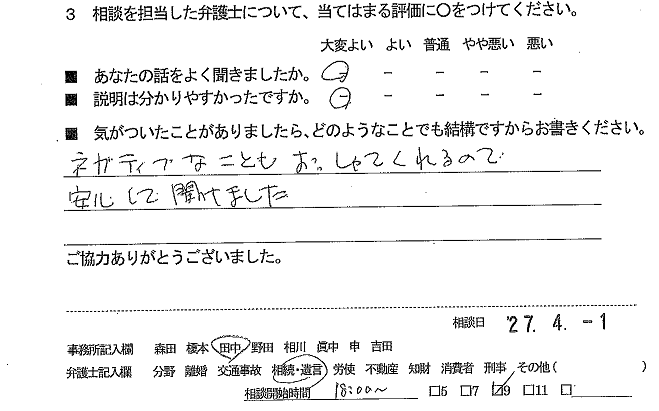 3 相談を担当した弁護士について、当てはまる評価に○をつけてください。
大変よい よい 普通 やや悪い 悪い
■ あなたの話をよく聞きましたか。 - - - - -
■ 説明は分かりやすかったですか。 - - - - -
■ 気がついたことがありましたら、どのようなことでも結構ですからお書きください。
ネガティブなことも おっしゃてくれるので
安心して聞けました
ご協力ありがとうございました。
相談日 '27. 4. -1
事務所記入欄 森田 榎本 田中 野田 相川 眞中 申 吉田
弁護士記入欄 分野 離婚 交通事故 相続・遺言 労使 不動産 知財 消費者 刑事 その他( )
相談開始時間 18:00~ □5 □7 ☑9 □11 □